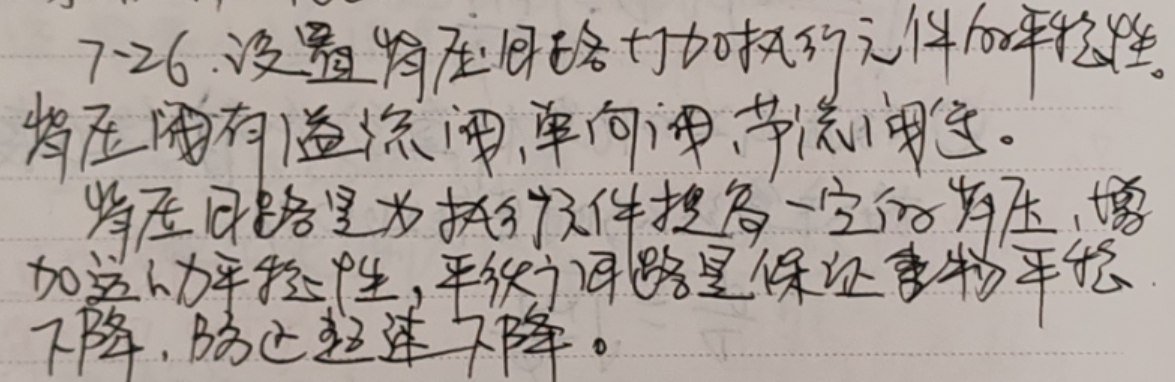 7-26.设置背压回路增加执行元件的平稳性。
背压阀有溢流阀,单向阀,节流阀等。
背压回路是为执行元件提高一定的背压,增
加运动平稳性,平衡回路是保证重物平稳
下降,防止超速下降。